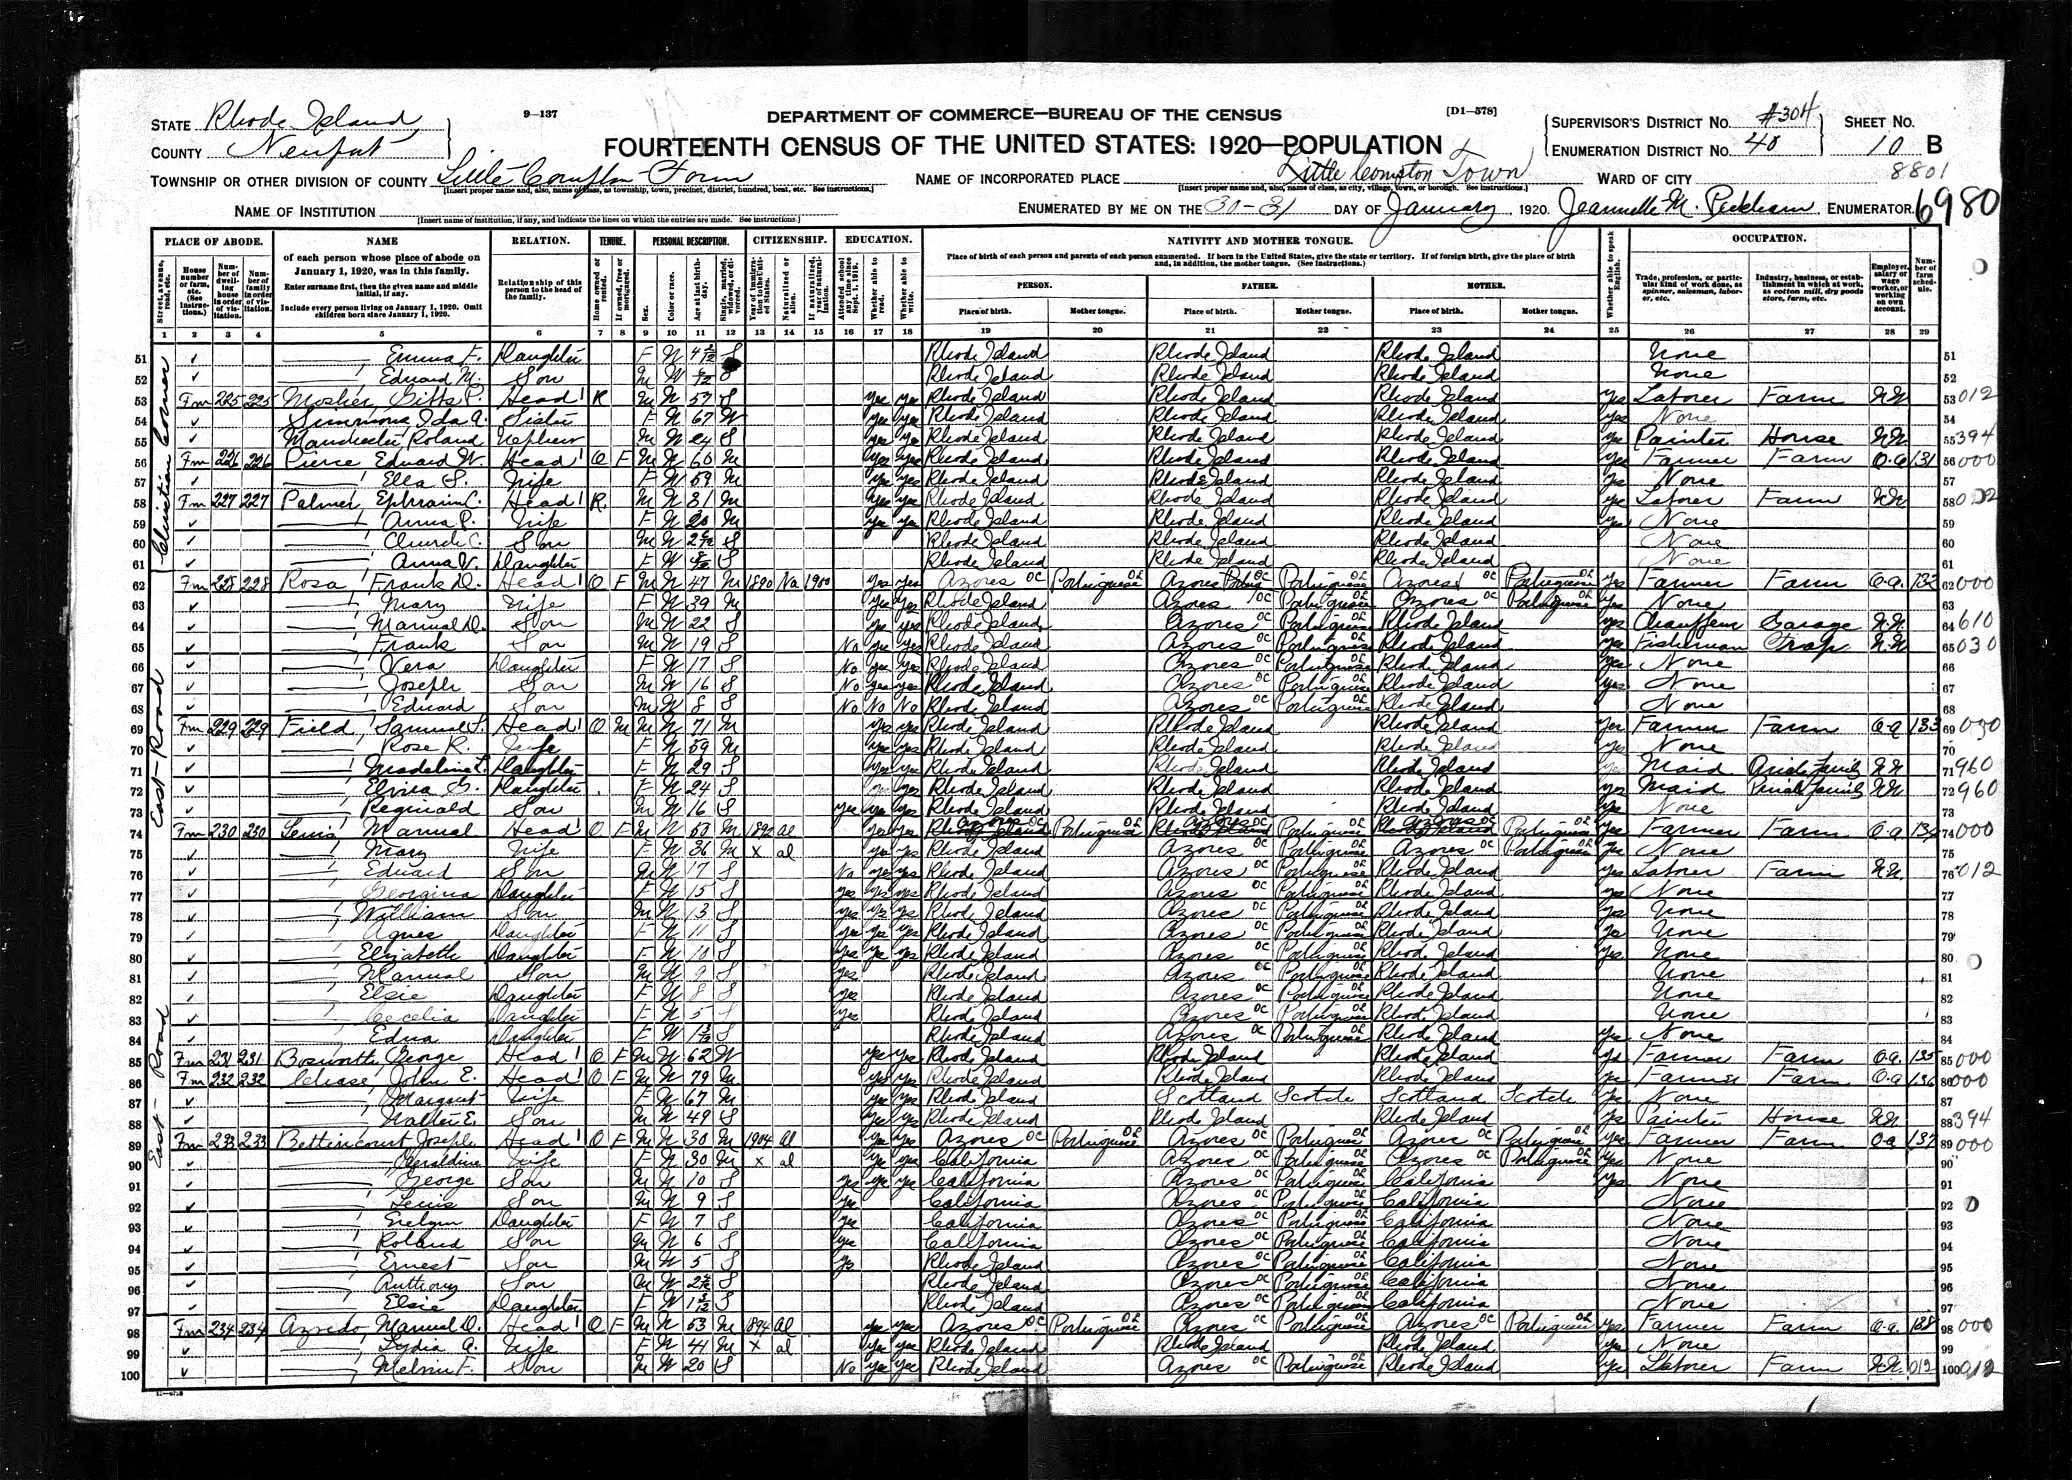 9—137
DEPARTMENT OF COMMERCE—BUREAU OF THE CENSUS
[D1—578]
FOURTEENTH CENSUS OF THE UNITED STATES: 1920—POPULATION
STATE Rhode Island
COUNTY Newport
TOWNSHIP OR OTHER DIVISION OF COUNTY Little Compton Town
[Insert proper name and, also, name of class, as township, town, precinct, district, hundred, beat, etc. See instructions.]
NAME OF INSTITUTION
[Insert name of institution, if any, and indicate the lines on which the entries are made. See instructions.]
NAME OF INCORPORATED PLACE Little Compton Town
[Insert proper name and, also, name of class, as city, village, town, or borough. See instructions.]
WARD OF CITY
SUPERVISOR'S DISTRICT No. #304
ENUMERATION DISTRICT No. 40
SHEET No. 10 B
8801
6980
ENUMERATED BY ME ON THE 30-31 DAY OF January, 1920. Jeannette M. Peckham ENUMERATOR.
PLACE OF ABODE. NAME RELATION. TENURE. PERSONAL DESCRIPTION. CITIZENSHIP. EDUCATION. NATIVITY AND MOTHER TONGUE. OCCUPATION.
of each person whose place of abode on January 1, 1920, was in this family.
Enter surname first, then the given name and middle initial, if any.
Include every person living on January 1, 1920. Omit children born since January 1, 1920.
Relationship of this person to the head of the family.
Place of birth of each person and parents of each person enumerated. If born in the United States, give the state or territory. If of foreign birth, give the place of birth and, in addition, the mother tongue. (See instructions.)
PERSON. FATHER. MOTHER.
Place of birth. Mother tongue. Place of birth. Mother tongue. Place of birth. Mother tongue.
Whether able to speak English.
1 2 3 4 5 6 7 8 9 10 11 12 13 14 15 16 17 18 19 20 21 22 23 24 25 26 27 28 29
East Road
51 Emma F. Daughter F W S Rhode Island Rhode Island Rhode Island None 51
52 Edward M. Son M W S Rhode Island Rhode Island Rhode Island None 52
53 Fm 225 225 Mosher, Head R M W 57 S Yes Yes Rhode Island Rhode Island Rhode Island Yes Laborer Farm 53 012
54 Simmons, Ida A. Sister F W 67 W Yes Yes Rhode Island Rhode Island Rhode Island Yes None 54
55 Manchester, Roland Nephew M W 24 S Yes Yes Rhode Island Rhode Island Rhode Island Yes Painter House 55 394
56 Fm 226 226 Pierce, Edward W. Head O F M W 60 M Yes Yes Rhode Island Rhode Island Rhode Island Yes Farmer Farm O.A 131 56 000
57 Ella S. Wife F W 59 M Yes Yes Rhode Island Rhode Island Rhode Island Yes None 57
58 Fm 227 227 Palmer, Ephraim C. Head R M W 31 M Yes Yes Rhode Island Rhode Island Rhode Island Yes Laborer Farm 58 012
59 Anna P. Wife F W 20 M Yes Yes Rhode Island Rhode Island Rhode Island Yes None 59
60 Church C. Son M W S Rhode Island Rhode Island Rhode Island None 60
61 Anna V. Daughter F W S Rhode Island Rhode Island Rhode Island None 61
62 Fm 228 228 Rosa, Frank D. Head O F M W 47 M 1890 Na 1900 Yes Yes Azores Portuguese Azores Portuguese Azores Portuguese Yes Farmer Farm O.A. 132 62 000
63 Mary Wife F W 39 M Yes Yes Rhode Island Azores Portuguese Azores Portuguese Yes None 63
64 Manuel D. Son M W 22 S Yes Yes Rhode Island Azores Portuguese Rhode Island Yes Chauffeur Garage 64 610
65 Frank Son M W 19 S No Yes Yes Rhode Island Azores Portuguese Rhode Island Yes Fisherman Trap 65 030
66 Vera Daughter F W 17 S No Yes Yes Rhode Island Azores Portuguese Rhode Island Yes None 66
67 Joseph Son M W 16 S No Yes Yes Rhode Island Azores Portuguese Rhode Island Yes None 67
68 Edward Son M W 8 S No No No Rhode Island Azores Portuguese Rhode Island None 68
69 Fm 229 229 Field, Samuel S. Head O M M W 71 M Yes Yes Rhode Island Rhode Island Rhode Island Yes Farmer Farm O.A 133 69
70 Rose R. Wife F W 59 M Yes Yes Rhode Island Rhode Island Rhode Island Yes None 70
71 Madeline L. Daughter F W 29 S Yes Yes Rhode Island Rhode Island Rhode Island Yes Maid Private Family 71 960
72 Elvira G. Daughter F W 24 S Yes Yes Rhode Island Rhode Island Rhode Island Yes Maid Private Family 72 960
73 Reginald Son M W 16 S Yes Yes Yes Rhode Island Rhode Island Rhode Island Yes None 73
74 Fm 230 230 Lewis, Manuel Head O F M W 53 M 1892 Al Yes Yes Azores Portuguese Azores Portuguese Azores Portuguese Yes Farmer Farm O.A 134 74 000
75 Mary Wife F W 36 M x al Yes Yes Rhode Island Azores Portuguese Azores Portuguese Yes None 75
76 Edward Son M W 17 S No Yes Yes Rhode Island Azores Portuguese Rhode Island Yes Laborer Farm 76 012
77 Georgina Daughter F W 15 S Yes Yes Yes Rhode Island Azores Portuguese Rhode Island Yes None 77
78 William Son M W 13 S Yes Yes Yes Rhode Island Azores Portuguese Rhode Island Yes None 78
79 Agnes Daughter F W 11 S Yes Yes Yes Rhode Island Azores Portuguese Rhode Island Yes None 79
80 Elizabeth Daughter F W 10 S Yes Yes Yes Rhode Island Azores Portuguese Rhode Island Yes None 80
81 Manual Son M W 9 S Yes Rhode Island Azores Portuguese Rhode Island None 81
82 Elsie Daughter F W 8 S Yes Rhode Island Azores Portuguese Rhode Island None 82
83 Cecelia Daughter F W 5 S Yes Rhode Island Azores Portuguese Rhode Island None 83
84 Edna Daughter F W S Rhode Island Azores Portuguese Rhode Island Yes None 84
85 Fm 231 231 Bosworth, George Head O F M W 62 W Yes Yes Rhode Island Rhode Island Rhode Island Yes Farmer Farm O.A. 135 85 000
86 Fm 232 232 Chase, John E. Head O F M W 79 M Yes Yes Rhode Island Rhode Island Rhode Island Yes Farmer Farm O.A 136 86 000
87 Margaret Wife F W 67 M Yes Yes Rhode Island Scotland Scotch Scotland Scotch Yes None 87
88 Walter E. Son M W 49 S Yes Yes Rhode Island Rhode Island Rhode Island Yes Painter House 88 394
89 Fm 233 233 Bettincourt, Joseph Head O F M W 30 M 1904 Al Yes Yes Azores Portuguese Azores Portuguese Azores Portuguese Yes Farmer Farm O.A 137 89 000
90 Geraldine Wife F W 30 M x al Yes Yes California Azores Portuguese Azores Portuguese Yes None 90
91 George Son M W 10 S Yes Yes Yes California Azores Portuguese California Yes None 91
92 Lewis Son M W 9 S Yes California Azores Portuguese California None 92
93 Evelyn Daughter F W 7 S Yes California Azores Portuguese California None 93
94 Roland Son M W 6 S Yes California Azores Portuguese California None 94
95 Ernest Son M W 5 S Yes Rhode Island Azores Portuguese California None 95
96 Anthony Son M W S Rhode Island Azores Portuguese California None 96
97 Elsie Daughter F W S Rhode Island Azores Portuguese California None 97
98 Fm 234 234 Azvedo, Manuel D. Head O F M W 53 M 1894 Al Yes Yes Azores Portuguese Azores Portuguese Azores Portuguese Yes Farmer Farm O.A. 138 98 000
99 Lydia A. Wife F W 41 M x al Yes Yes Rhode Island Rhode Island Rhode Island Yes None 99
100 Melvin F. Son M W 20 S No Yes Yes Rhode Island Azores Portuguese Rhode Island Yes Laborer Farm 012 100 012